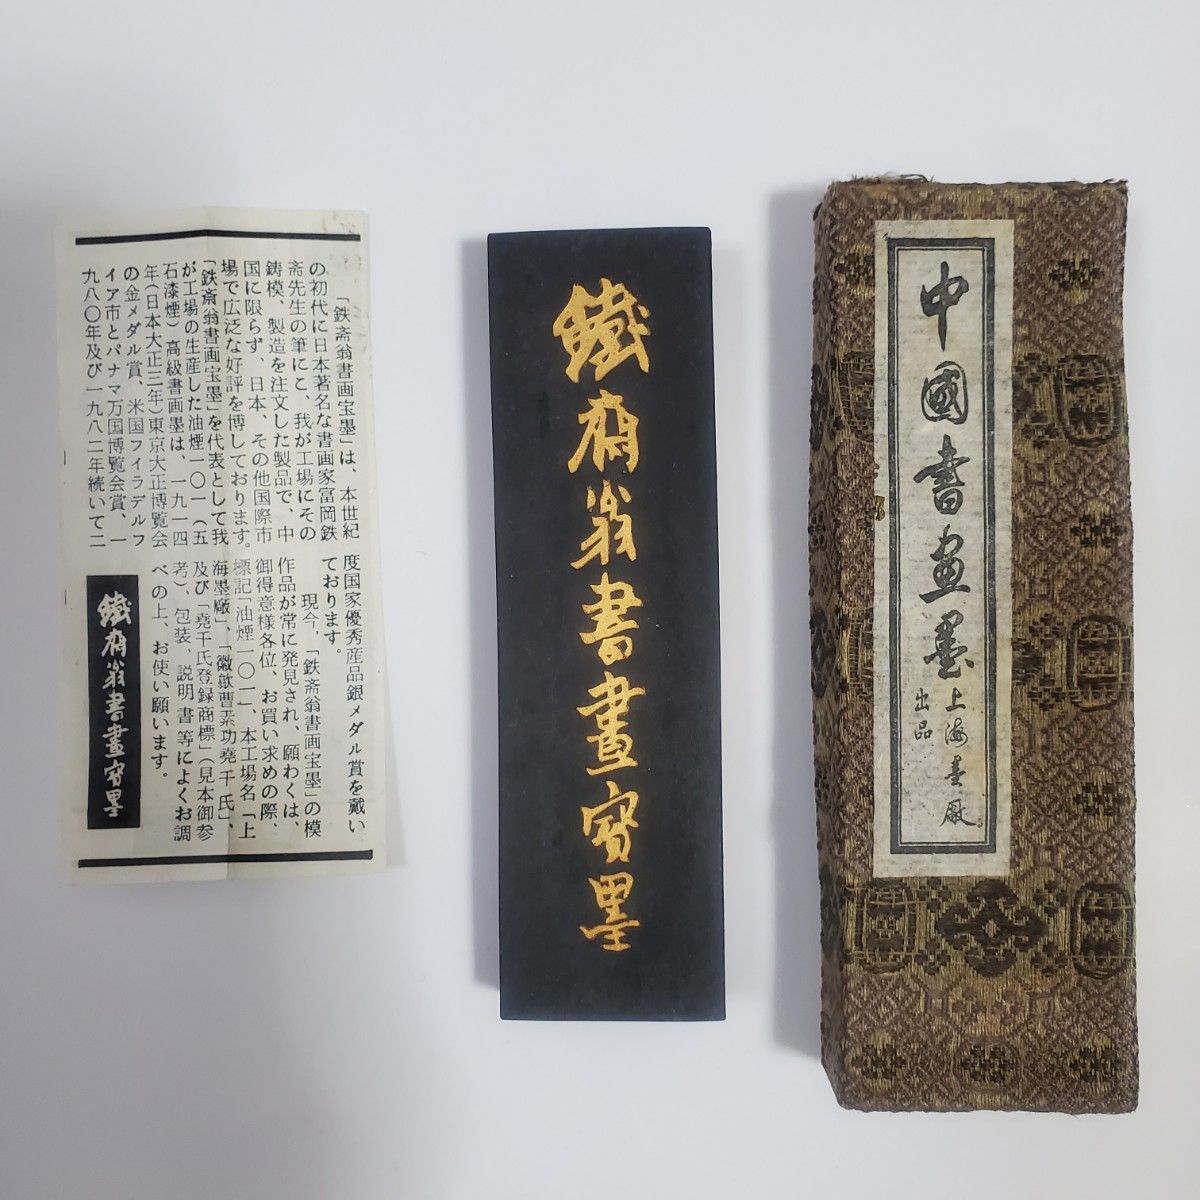 「鉄斎翁書画宝墨」は、本世紀
の初代に日本著名な書画家富岡鉄
斎先生の筆にこ、我が工場にその
鋳模、製造を注文した製品で、中
国に限らず、日本、その他国際市
場で広泛な好評を博しております。
「鉄斎翁書画宝墨」を代表として我
が工場の生産した油煙一〇一（五
石漆煙）高級書画墨は、一九一四
年（日本大正三年）東京大正博覧会
の金メダル賞、米国フイラデルフ
イア市とパナマ万国博覧会賞、一
九八〇年及び一九八二年続いて二
度国家優秀産品銀メダル賞を戴い
ております。
現今、「鉄斎翁書画宝墨」の模
作品が常に発見され、願わくは、
御得意様各位、お買い求めの際、
標記「油煙一〇一」、本工場名「上
海墨廠」、「徽歙曹素功堯千氏」、
及び「堯千氏登録商標」（見本御参
考）、包装、説明書等によくお調
べの上、お使い願います。
鐵齋翁書畫寶墨
鐵齋翁書畫寶墨
中國書畫墨
上海墨厰
出品